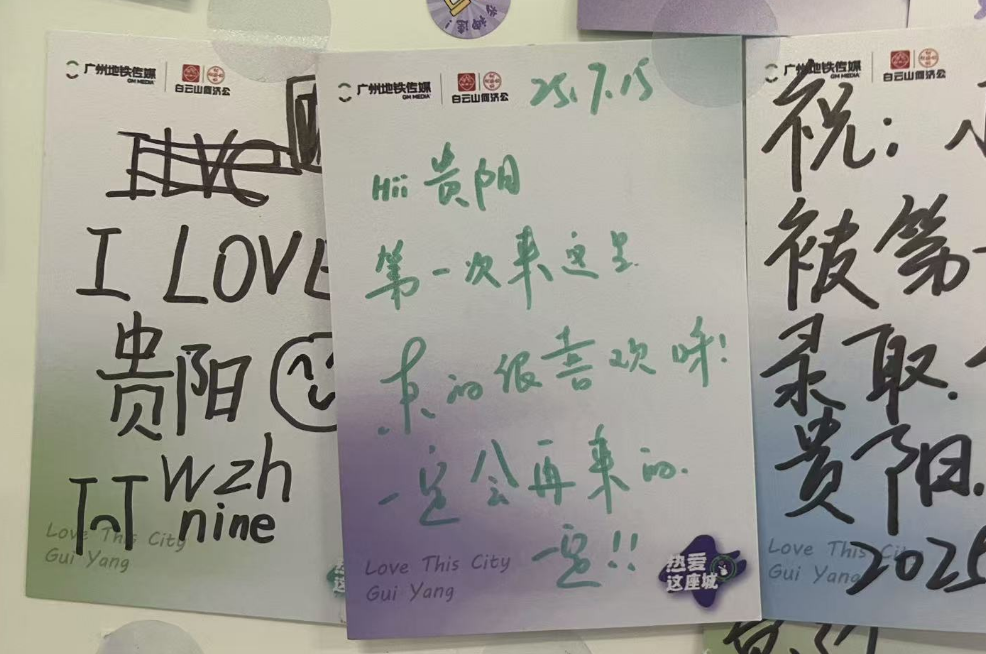 广州地铁传媒
GM MEDIA
白云山何济公
I LOVE
贵阳
wzh
nine
Love This City
Gui Yang
广州地铁传媒
GM MEDIA
白云山何济公
25.7.15
Hii 贵阳
第一次来这里
真的很喜欢呀!
一定会再来的.
一定!!
Love This City
Gui Yang
热爱
这座城
广州地铁传媒
GM MEDIA
白云山何济公
祝:
被第一
录取.
贵阳.
2025
Love This City
Gui Yang